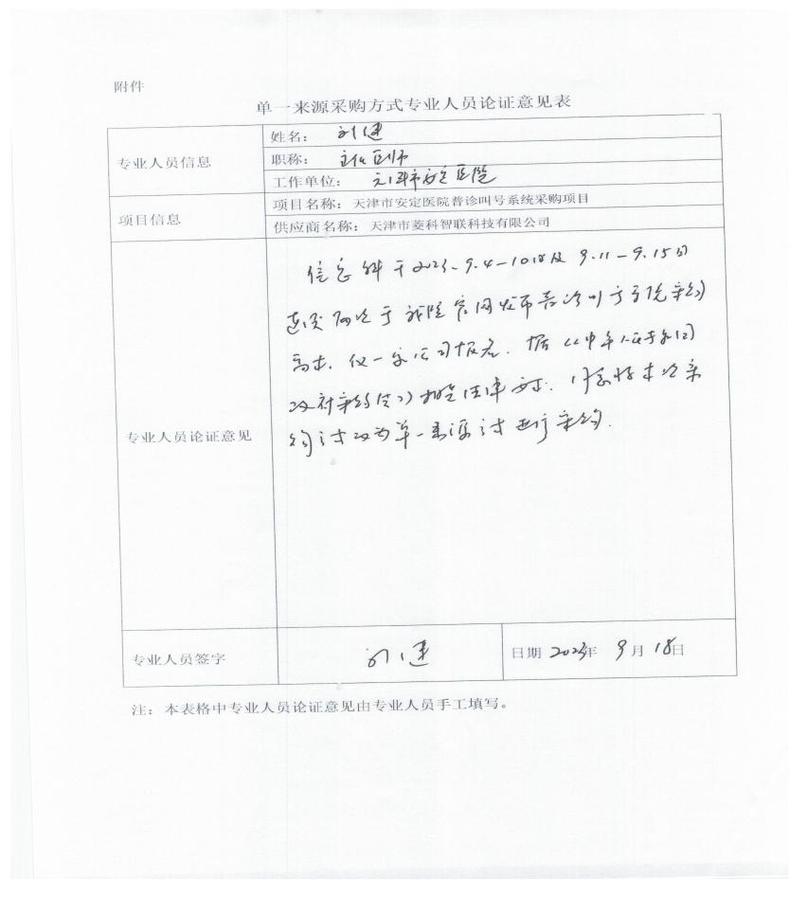 附件
单一来源采购方式专业人员论证意见表
专业人员信息
姓名： 刘建
职称： 主任医师
工作单位： 天津市安定医院
项目信息
项目名称：天津市安定医院普诊叫号系统采购项目
供应商名称：天津市菱科智联科技有限公司
专业人员论证意见
信息科于2023.9.4- 及9.11-9.15日
连续两次于我院官网发布普诊叫号系统采购
公司报名. 据《中华人民共和国
政府采购法》相关法律 同意将本次采
购 改为单一来源 进行采购.
专业人员签字
刘建
日期 2023年 9月 18日
注：本表格中专业人员论证意见由专业人员手工填写。